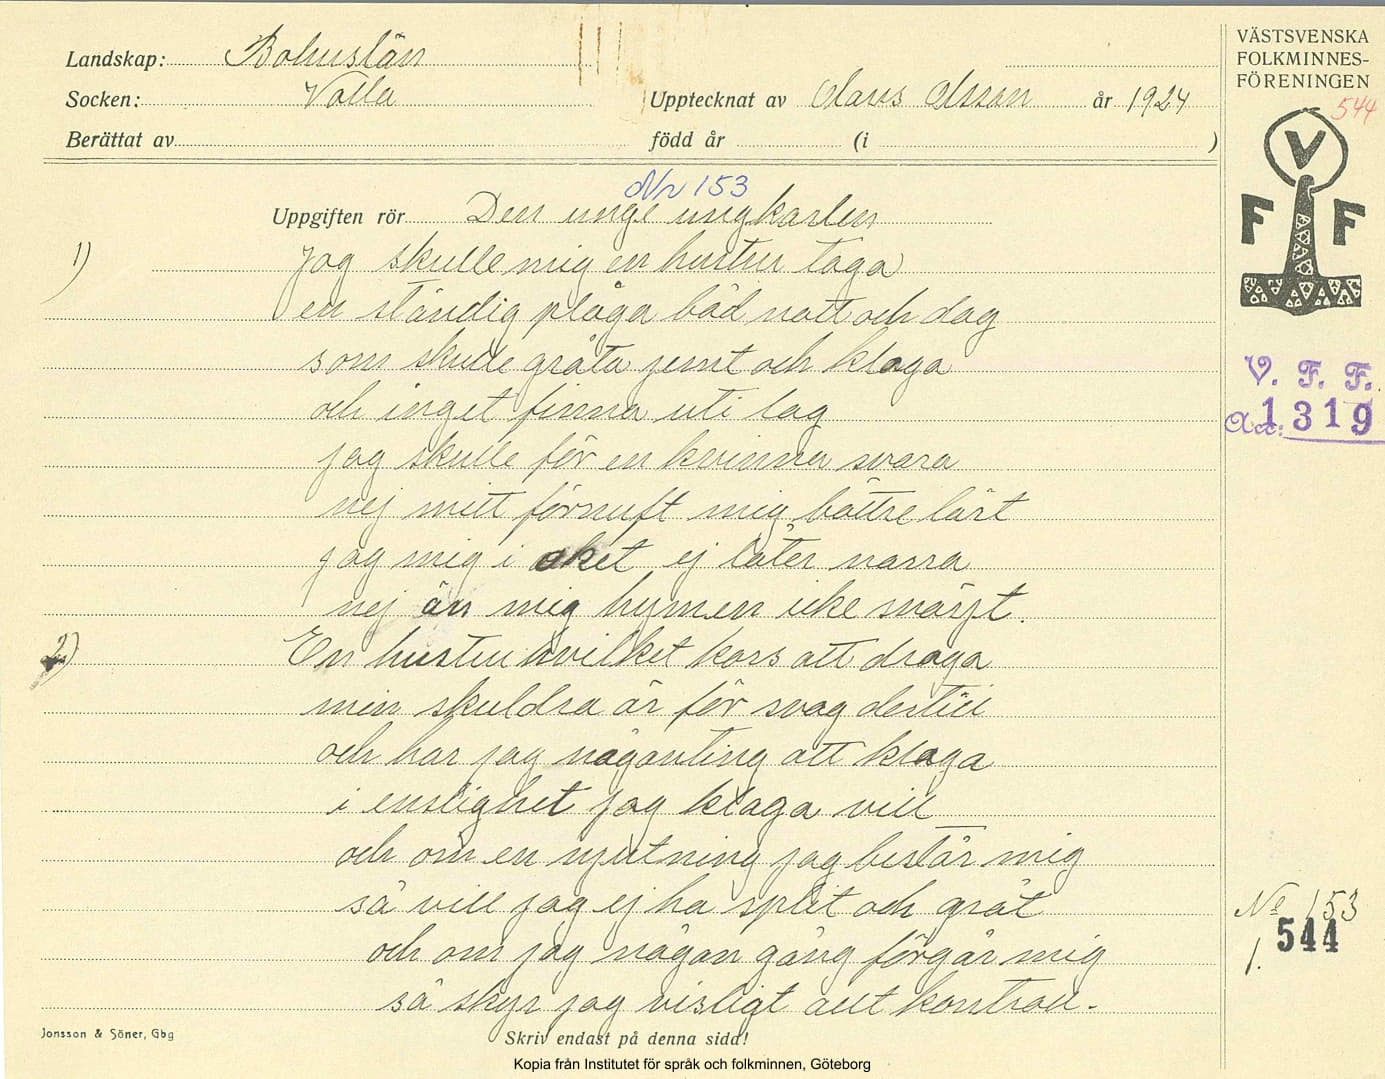 Landskap: Bohuslän
Socken: Valla
Upptecknat av Claus Olsson år 1924
Berättat av
född år (i )
VÄSTSVENSKA
FOLKMINNES-
FÖRENINGEN
544
V
F F
V. F. F.
Acc: 1319
Nr 153
Uppgiften rör Den unge ungkarlen
1) Jag skulle mig en hustru taga
en ständig plåga båd natt och dag
som skulle gråta jemt och klaga
och inget finna uti lag
jag skulle för en kvinna svara
nej mitt förnuft mig bättre lärt
jag mig i oket ej låter narra
nej än mig hymen icke snärjt.
2) En hustru hvilket kors att draga
min skuldra är för svag dertill
och har jag någonting att klaga
i enslighet jag klaga vill
och om en njutning jag består mig
så vill jag ej ha split och gråt
och om jag någon gång förgår mig
så skyr jag visligt allt kontroll.
No 153
1. 544
Jonsson & Söner, Gbg
Skriv endast på denna sida!
Kopia från Institutet för språk och folkminnen, Göteborg